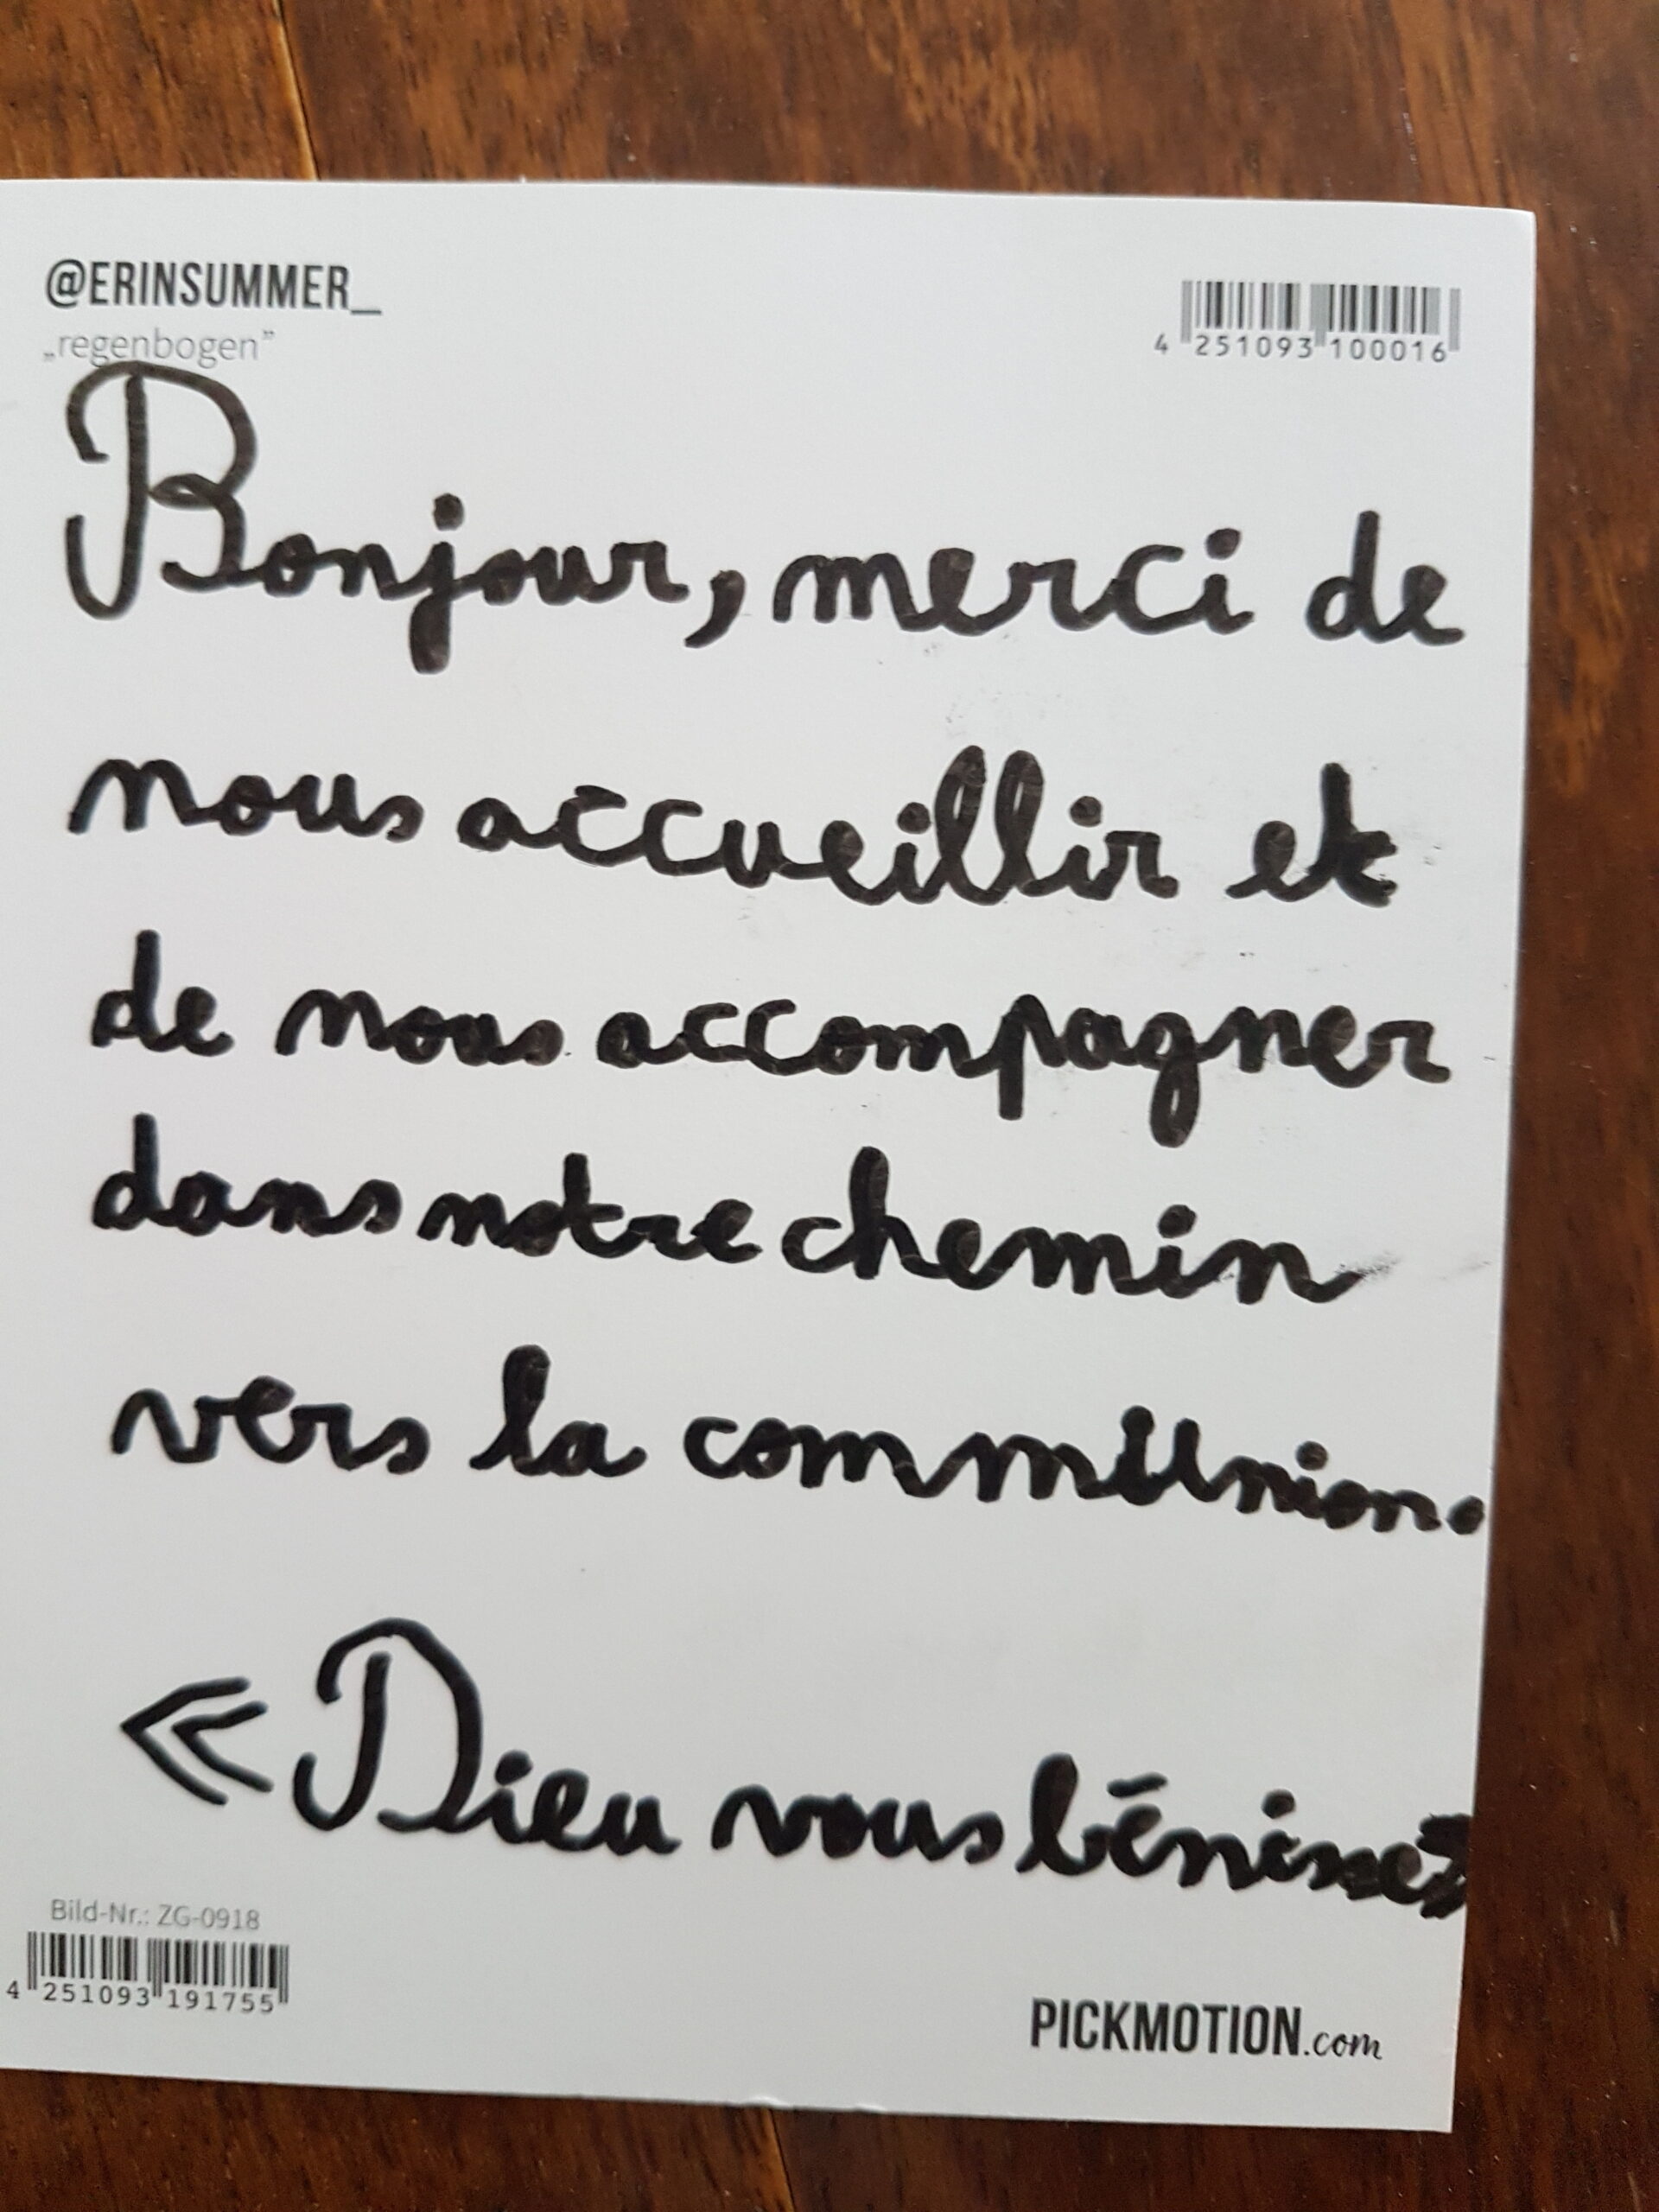 @ERINSUMMER_
„regenbogen”
4 251093 100016
Bonjour, merci de
nous accueillir et
de nous accompagner
dans notre chemin
vers la communion.
« Dieu vous bénisse »
Bild-Nr.: ZG-0918
4 251093 191755
PICKMOTION.com